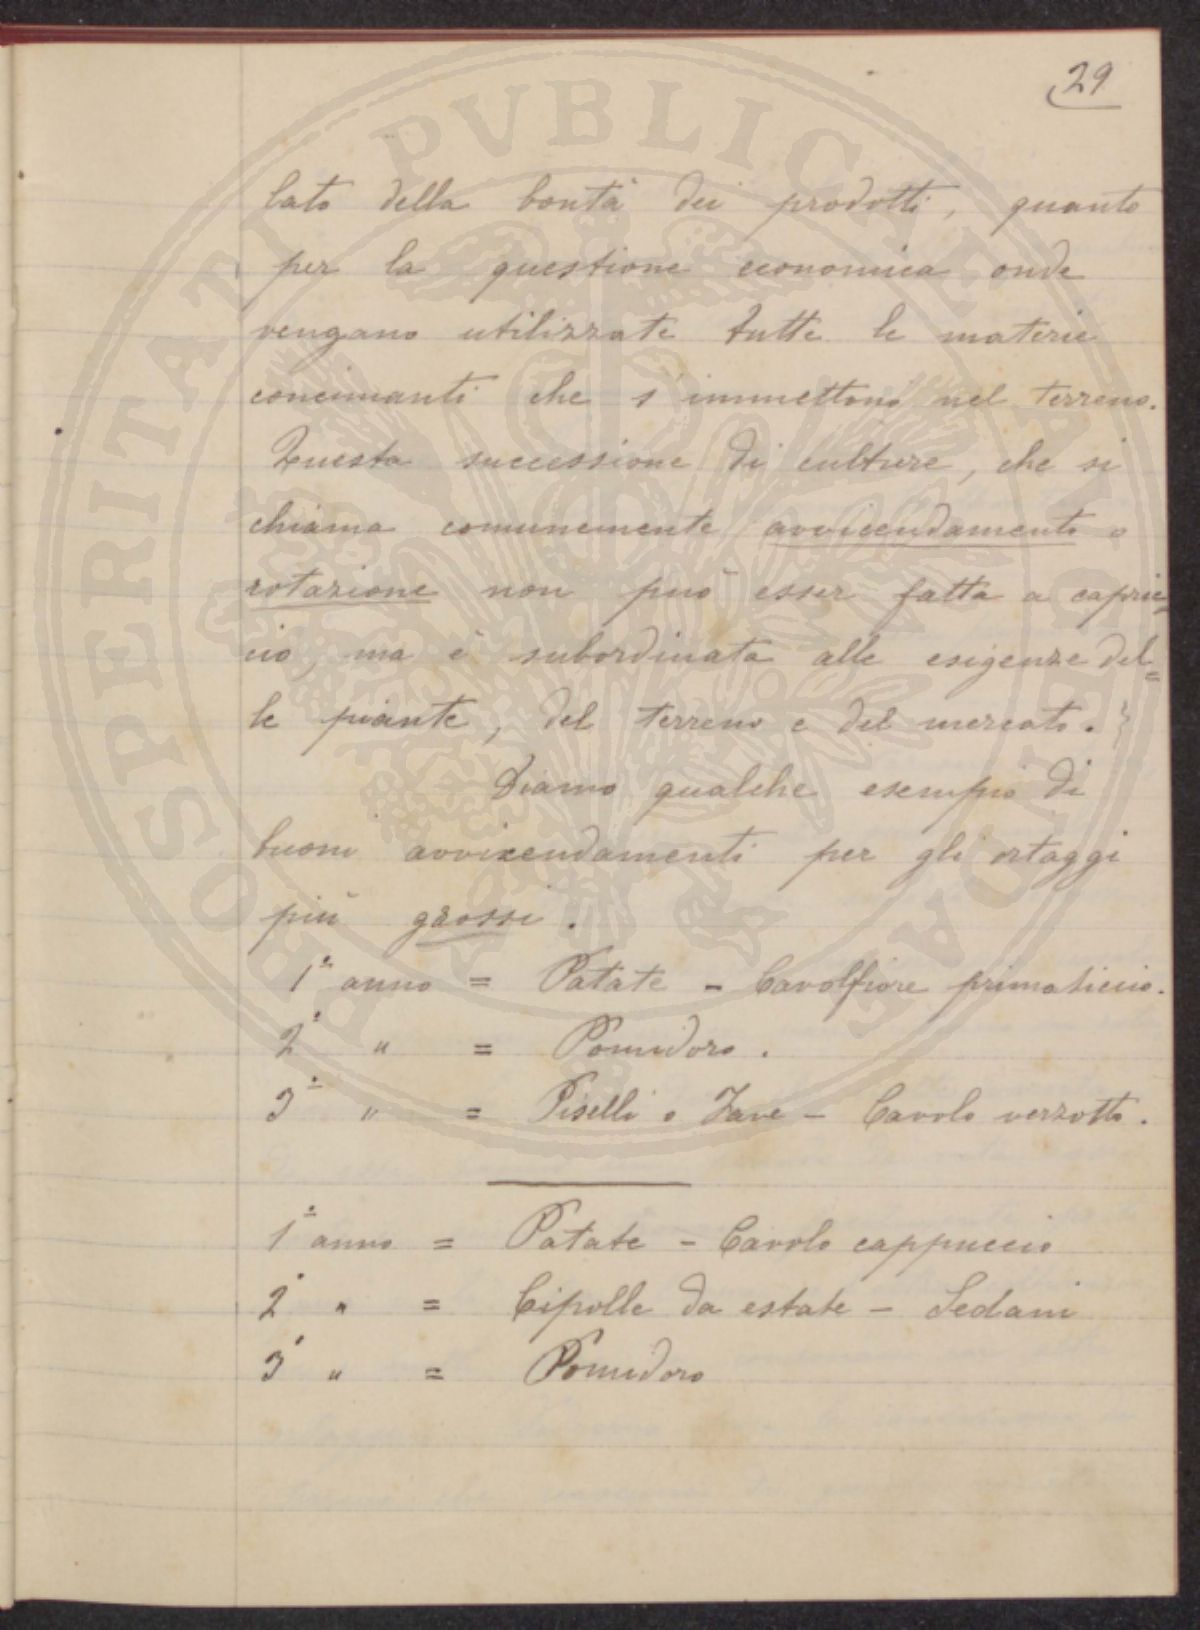 29
lato della bontà dei prodotti, quanto
per la questione economica onde
vengano utilizzate tutte le materie
concimanti che s'immettono nel terreno.
Questa successione di culture, che si
chiama comunemente avvicendamento o
rotazione non può esser fatta a capric=
cio, ma è subordinata alle esigenze del=
le piante, del terreno e del mercato.
Diamo qualche esempio di
buoni avvicendamenti per gli ortaggi
più grossi.
1º anno = Patate - Cavolfiore primaticcio.
2º " = Pomidoro.
3º " = Piselli o Fave - Cavolo verzotto.
1º anno = Patate - Cavolo cappuccio
2º " = Cipolle da estate - Sedani
3º " = Pomidoro
PROSPERITATI PVBLICAE AVGENDAE